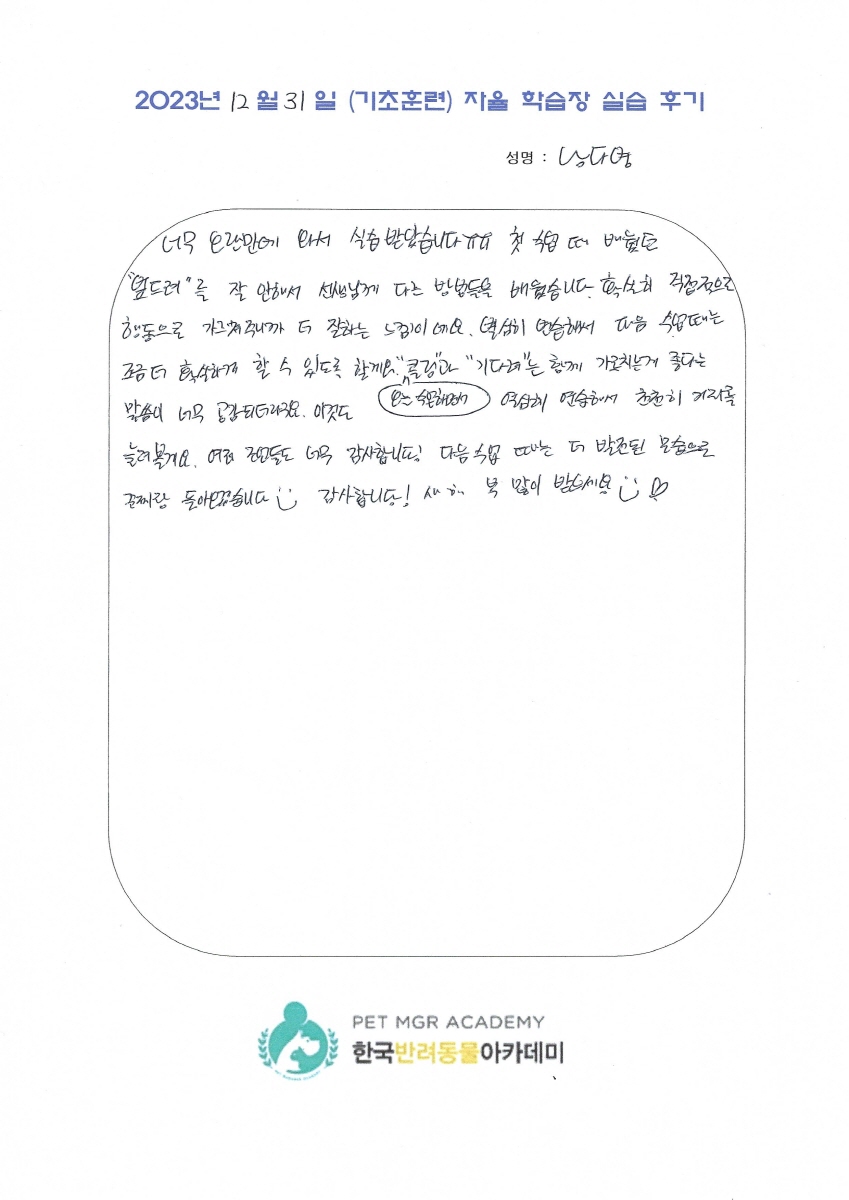 2023년 12월 31일 (기초훈련) 자율 학습장 실습 후기
성명 : 남다영
너무 오랜만에 와서 실습 받았습니다ㅠㅠ 첫 수업 때 배웠던
"엎드려"를 잘 안해서 선생님께 다른 방법들을 배웠습니다. 확실히 직접적으로
행동으로 가르쳐주니까 더 잘하는 느낌이에요. 열심히 연습해서 다음 수업때는
조금 더 확실하게 할 수 있도록 할게요. "콜링"과 "기다려"는 함께 가르치는게 좋다는
말씀이 너무 공감되더라구요. 이것도 열심히 연습해서 천천히 거리를
늘려볼게요. 여러 조언들도 너무 감사합니다! 다음 수업 때는 더 발전된 모습으로
돌아오겠습니다 감사합니다! 새해 복 많이 받으세요
PET MGR ACADEMY
한국반려동물아카데미